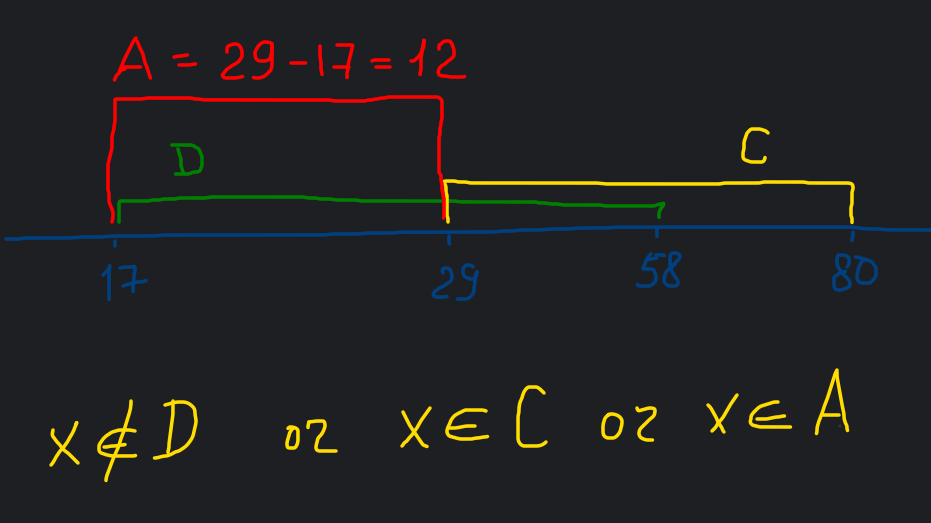 A = 29-17 = 12
D
C
17 29 58 80
x∉D or x∈C or x∈A